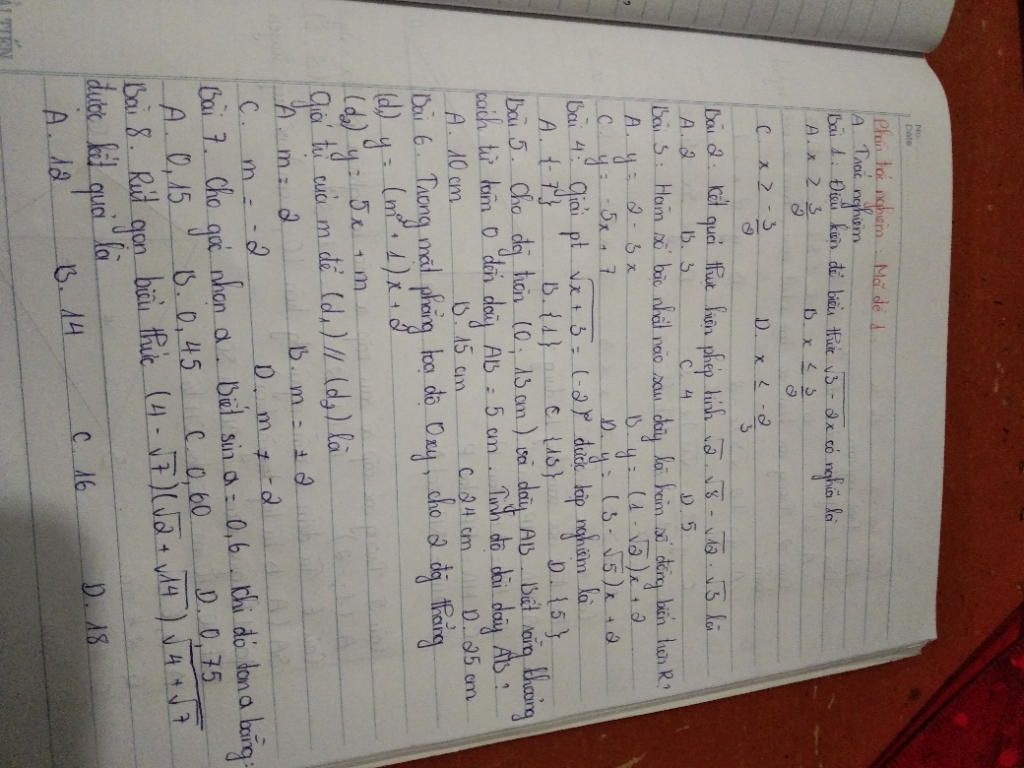 No.
Date
Phần trắc nghiệm Mã đề 1.
A. Trắc nghiệm
Bài 1: Điều kiện để biểu thức √3 - 2x có nghĩa là
A. x ≥ 3/2 B. x ≤ 3/2
C. x ≥ -3/2 D. x ≤ -2/3
Bài 2: Kết quả thực hiện phép tính √2 . √8 - √12 . √3 là
A. 2 B. 3 C. 4 D. 5
Bài 3: Hàm số bậc nhất nào sau đây là hàm số đồng biến trên R?
A. y = 2 - 3x B y = (1 - √2)x + 2
C. y = -5x + 7 D. y = (3 - √5)x + 2
Bài 4: Giải pt √x + 3 = (-2)² được tập nghiệm là
A. {-7} B. {1} C. {13} D. {5}
Bài 5. Cho đg tròn (0, 13 cm) và dây AB. Biết rằng khoảng
cách từ tâm O đến dây AB = 5 cm. Tính độ dài dây AB?
A. 10 cm B. 15 cm C. 24 cm D. 25 cm
Bài 6. Trong mặt phẳng toạ độ Oxy, cho 2 đg thẳng
(d) y = (m² + 1)x + 2
(d₂) y = 5x + m
Giá trị của m để (d₁) // (d₂) là
A. m = 2 B. m = ± 2
C. m = -2 D. m ≠ -2
Bài 7. Cho góc nhọn a. Biết sin a = 0,6. Khi đó tan a bằng:
A. 0,15 B. 0,45 C. 0,60 D. 0,75
Bài 8. Rút gọn biểu thức (4 - √7)(√2 + √14)√4 + √7
được kết quả là
A. 12 B. 14 C. 16 D. 18